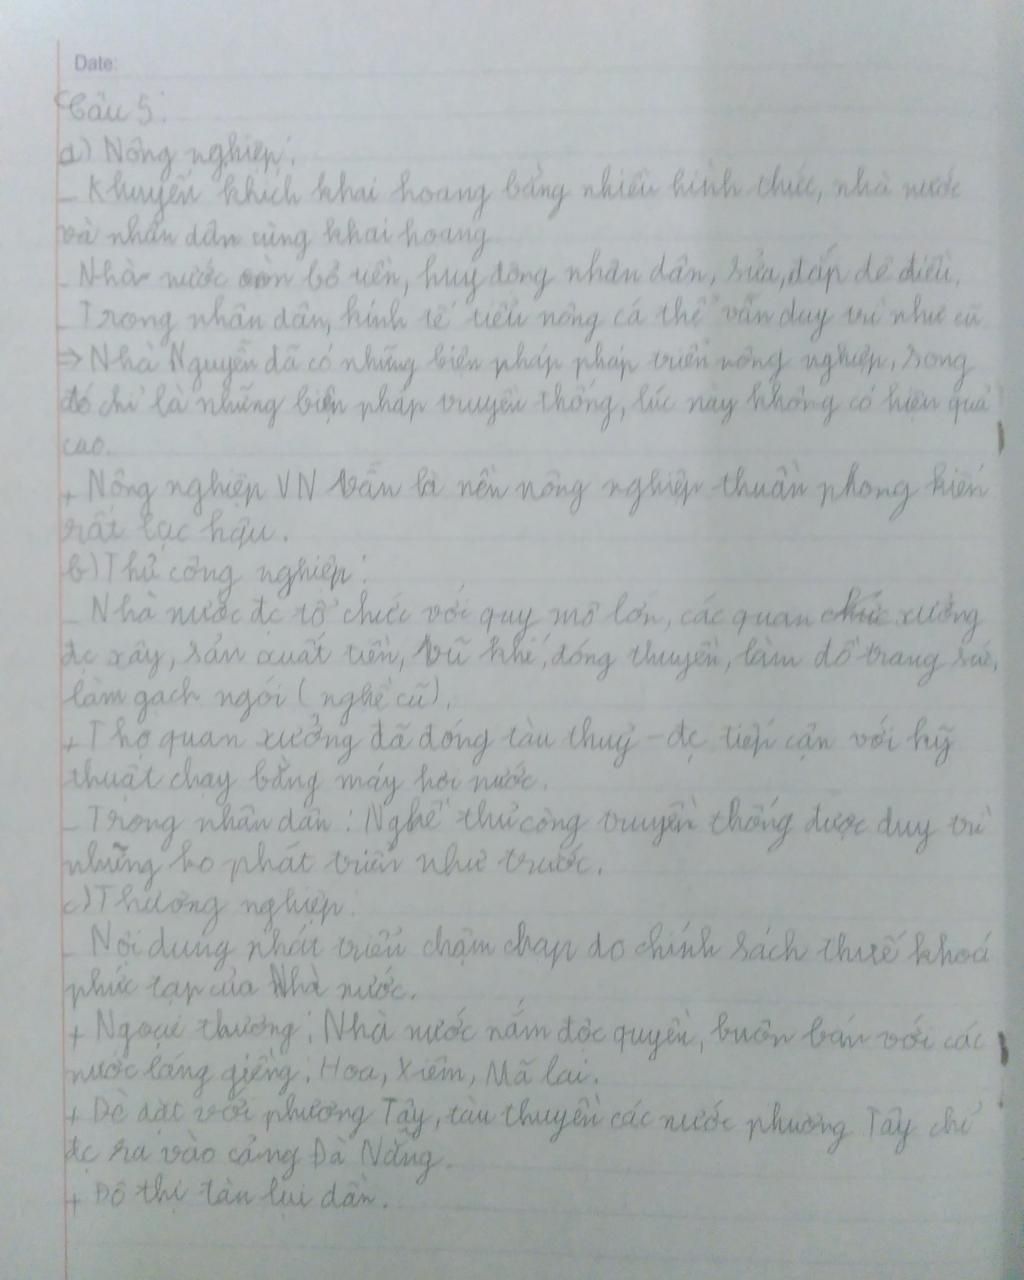 Date:
Câu 5:
a) Nông nghiệp:
- Khuyến khích khai hoang bằng nhiều hình thức, nhà nước
và nhân dân cùng khai hoang
- Nhà nước còn bỏ tiền, huy động nhân dân, sửa, đắp đê điều.
- Trong nhân dân, kinh tế tiểu nông cá thể vẫn duy trì như cũ
=> Nhà Nguyễn đã có những biện pháp pháp triển nông nghiệp, song
đó chỉ là những biện pháp truyền thống, lúc này không có hiệu quả
cao.
+ Nông nghiệp VN vẫn là nền nông nghiệp thuần phong kiến
rất lạc hậu.
b) Thủ công nghiệp:
- Nhà nước đc tổ chức với quy mô lớn, các quan xưởng
đc xây, sản xuất tiền, vũ khí, đóng thuyền, làm đồ trang sức,
làm gạch ngói (nghề cũ).
+ Thợ quan xưởng đã đóng tàu thuỷ - đc tiếp cận với kỹ
thuật chạy bằng máy hơi nước.
- Trong nhân dân: Nghề thủ công truyền thống được duy trì
nhưng ko phát triển như trước.
c) Thương nghiệp.
- Nội dung phát triển chậm chạp do chính sách thuế khoá
phức tạp của Nhà nước.
+ Ngoại thương: Nhà nước nắm độc quyền, buôn bán với các
nước láng giềng: Hoa, Xiêm, Mã lai.
+ Dè dặt với phương Tây, tàu thuyền các nước phương Tây chỉ
đc ra vào cảng Đà Nẵng.
+ Đô thị tàn lụi dần.